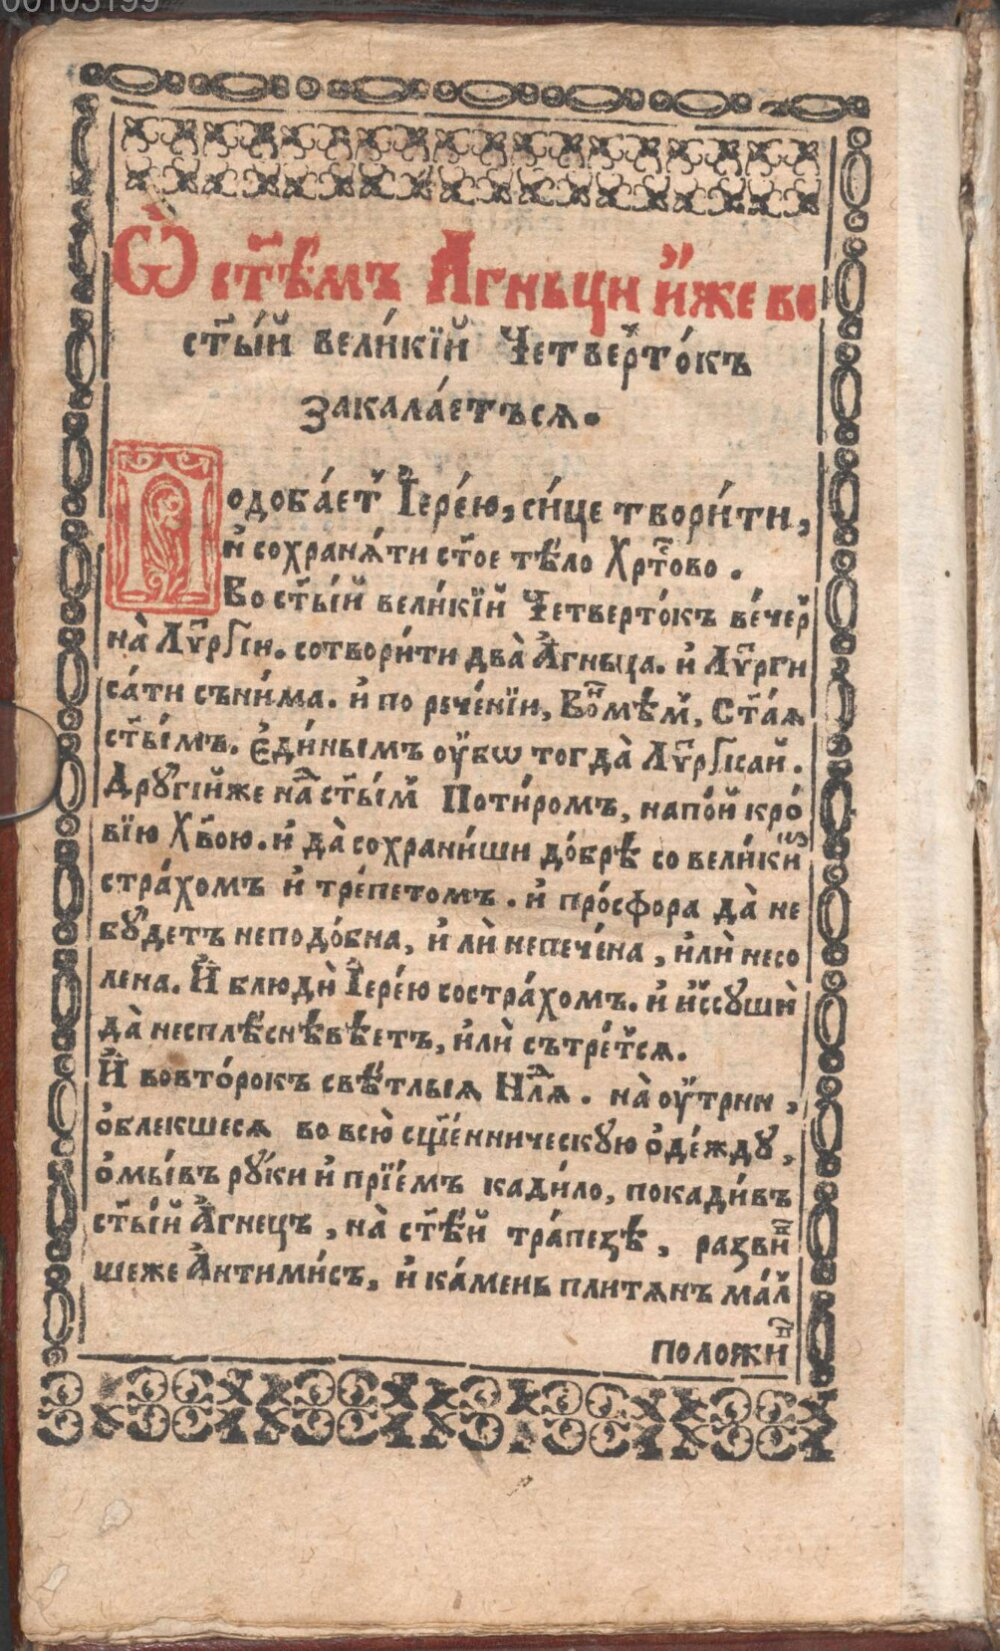 00103199
Ѽ ст҃ѣмъ Агньци и҆́же во
ст҃ы́й вели́кїй Четверто́къ
закала́етъсѧ.
Подоба́ет Іере́ю, си́це твори́ти,
и҆ сохранѧ́ти ст҃ое тѣ́ло Хрⷭ҇тово.
Во ст҃ы́й вели́кїй Четверто́къ ве́чер
на̀ Лѵⷮргїи. сотвори́ти два̀ А҆гньца. и҆ Лѵⷮрги
са́ти съни́ма. и҆ по рече́нїи, Воⷩ҇мѣ́м, Ст҃а́ѧ
ст҃ы́мъ. Е҆ди́нымъ оу҆́бѡ тогда̀ Лѵⷮргіса́й.
Дрꙋгі́йже наⷣ ст҃ы́м Поти́ромъ, напо́й кро́
вїю Хв҃ою. и҆ да̀ сохрани́ши до́брѣ со вели́киⷨ
стра́хомъ и҆ тре́петомъ. и҆ про́сфора да̀ не
бꙋ́детъ неподо́бна, и҆ лѝ непече́на, и҆лѝ несо
лена. И҆ блюдѝ Іере́ю состра́хомъ. и҆ и҆́ссꙋшѝ
да̀ несплѣ́снѣвѣ́етъ, и҆лѝ сътре́тсѧ.
И҆ вовто́рокъ свѣ́тлыѧ Нⷣлѧ. на̀ оу҆́трни,
ѻ҆́блекшесѧ во всю̀ сщ҃е́нническꙋю ѻ҆де́ждꙋ,
ѻ҆мы́въ рꙋ́ки и҆ прїе́мъ кади́ло, покади́въ
ст҃ы́й А҆́гнецъ, на̀ ст҃ѣ́й тра́пезѣ, развиⷡ҇
шеже А҆нтими́съ, и҆ ка́мень плитѧнъ ма́л
положиⷡ